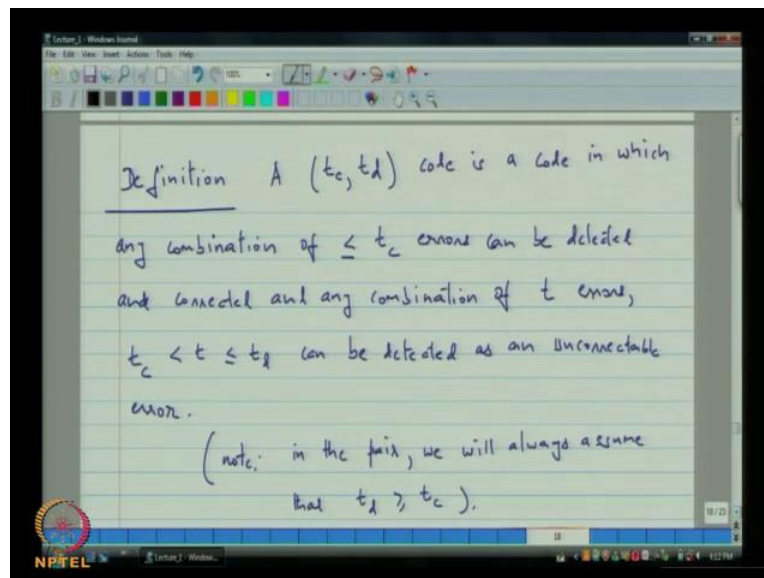 Lecture_1 - Windows Journal
File Edit View Insert Actions Tools Help
100%
Definition A (t_c, t_d) code is a code in which
any combination of ≤ t_c errors can be detected
and corrected and any combination of t errors,
t_c < t ≤ t_d can be detected as an uncorrectable
error.
(note: in the pair, we will always assume
that t_d ≥ t_c).
18/23
18
NPTEL
Lecture_1 - Window...
4:12 PM